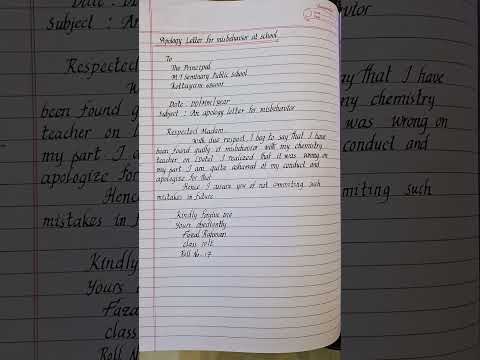 Apology Letter for misbehavior at school
To
The Principal
M T Seminary Public school
Kottayam
Date: DD/MM/year
Subject : An apology letter for misbehavior
Respected Madam
With due respect I beg to say that I have
been found guilty of misbehavior with my chemistry
teacher on (date) I realized that it was wrong on
my part I am quite ashamed of my conduct and
apologize for that
Hence I assure you of not commiting such
mistakes in future
Kindly forgive me
Yours obediently
Fazal Rahman
class 10th
Roll No 17